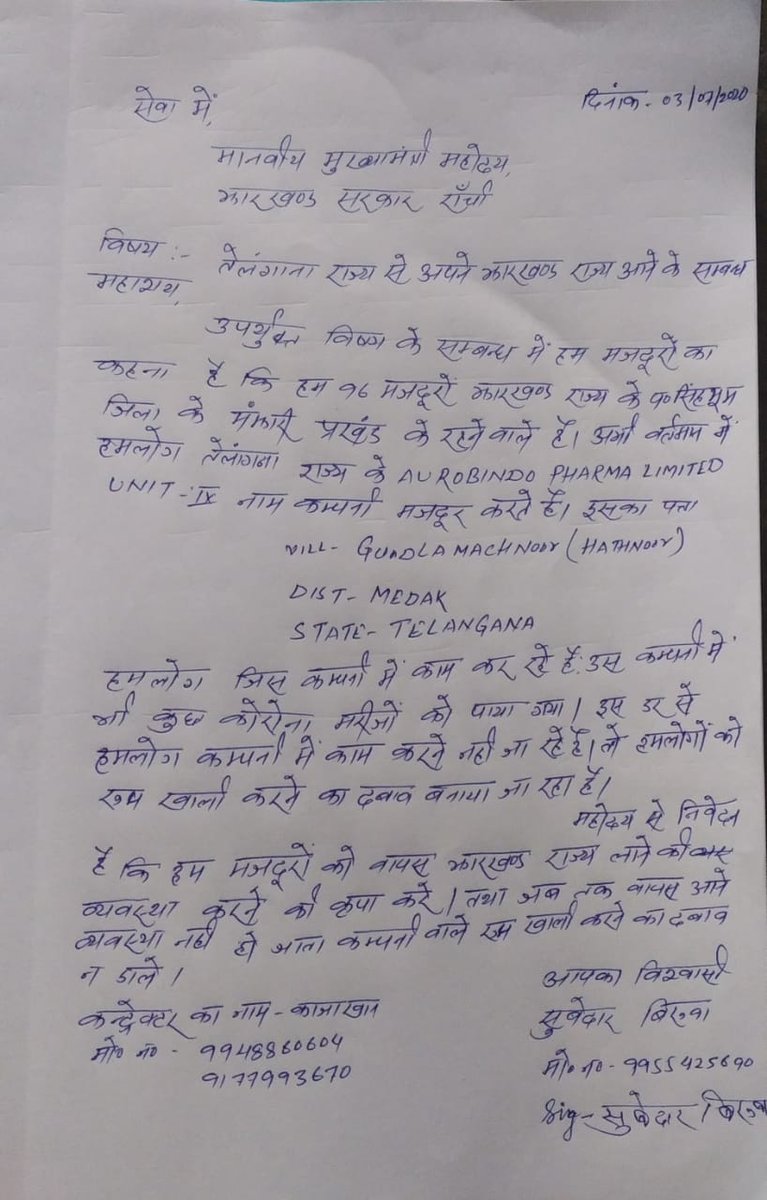 सेवा में,
दिनांक- 03/07/2020
माननीय मुख्यामंत्री महोदय,
झारखण्ड सरकार राँची
विषय :- तेलंगाना राज्य से अपने झारखण्ड राज्य आने के सम्बन्ध
महाशय,
उपर्युक्त विषय के सम्बन्ध में हम मजदूरों का
कहना है कि हम १६ मजदूरों झारखण्ड राज्य के प० सिंहभूम
जिला के मंझारी प्रखंड के रहने वाले है। अभी वर्तमान में
हमलोग तेलंगना राज्य के AUROBINDO PHARMA LIMITED
UNIT-IX नाम कम्पनी मजदूर करते है। इसका पता
VILL- GUNDLA MACHNOOR (HATHNOOR)
DIST- MEDAK
STATE- TELANGANA
हमलोग जिस कम्पनी में काम कर रहे हैं. उस कम्पनी में
भी कुछ कोरोना मरीजों को पाया गया। इस डर से
हमलोग कम्पनी में काम करने नहीं जा रहे है। तो हमलोगों को
रूम खाली करने का दबाव बनाया जा रहा है।
महोदय से निवेदन
है कि हम मजदूरों को वापस झारखण्ड राज्य लाने की
व्यवस्था करने की कृपा करे। तथा जब तक वापस आने
व्यवस्था नहीं हो जाता कम्पनी वाले रूम खाली करने का दबाव
न डाले।
आपका विश्वासी
कन्ट्रेक्टर का नाम - काजाखान
सुबेदार बिरुवा
मो० न० - 9948860604
9177993670
मो० न० - 9955425690
Sig- सुबेदार बिरुवा